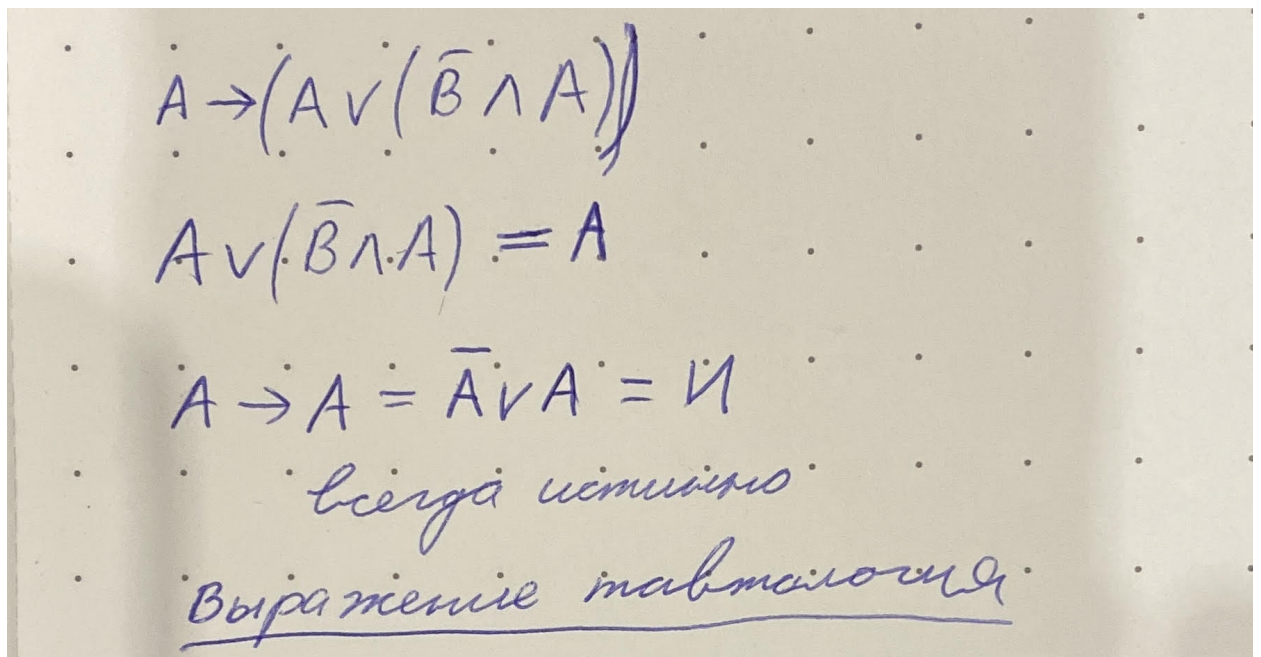 A → (A ∨ (B̅ ∧ A))
A ∨ (B̅ ∧ A) = A
A → A = A̅ ∨ A = И
всегда истинно
Выражение тавтология